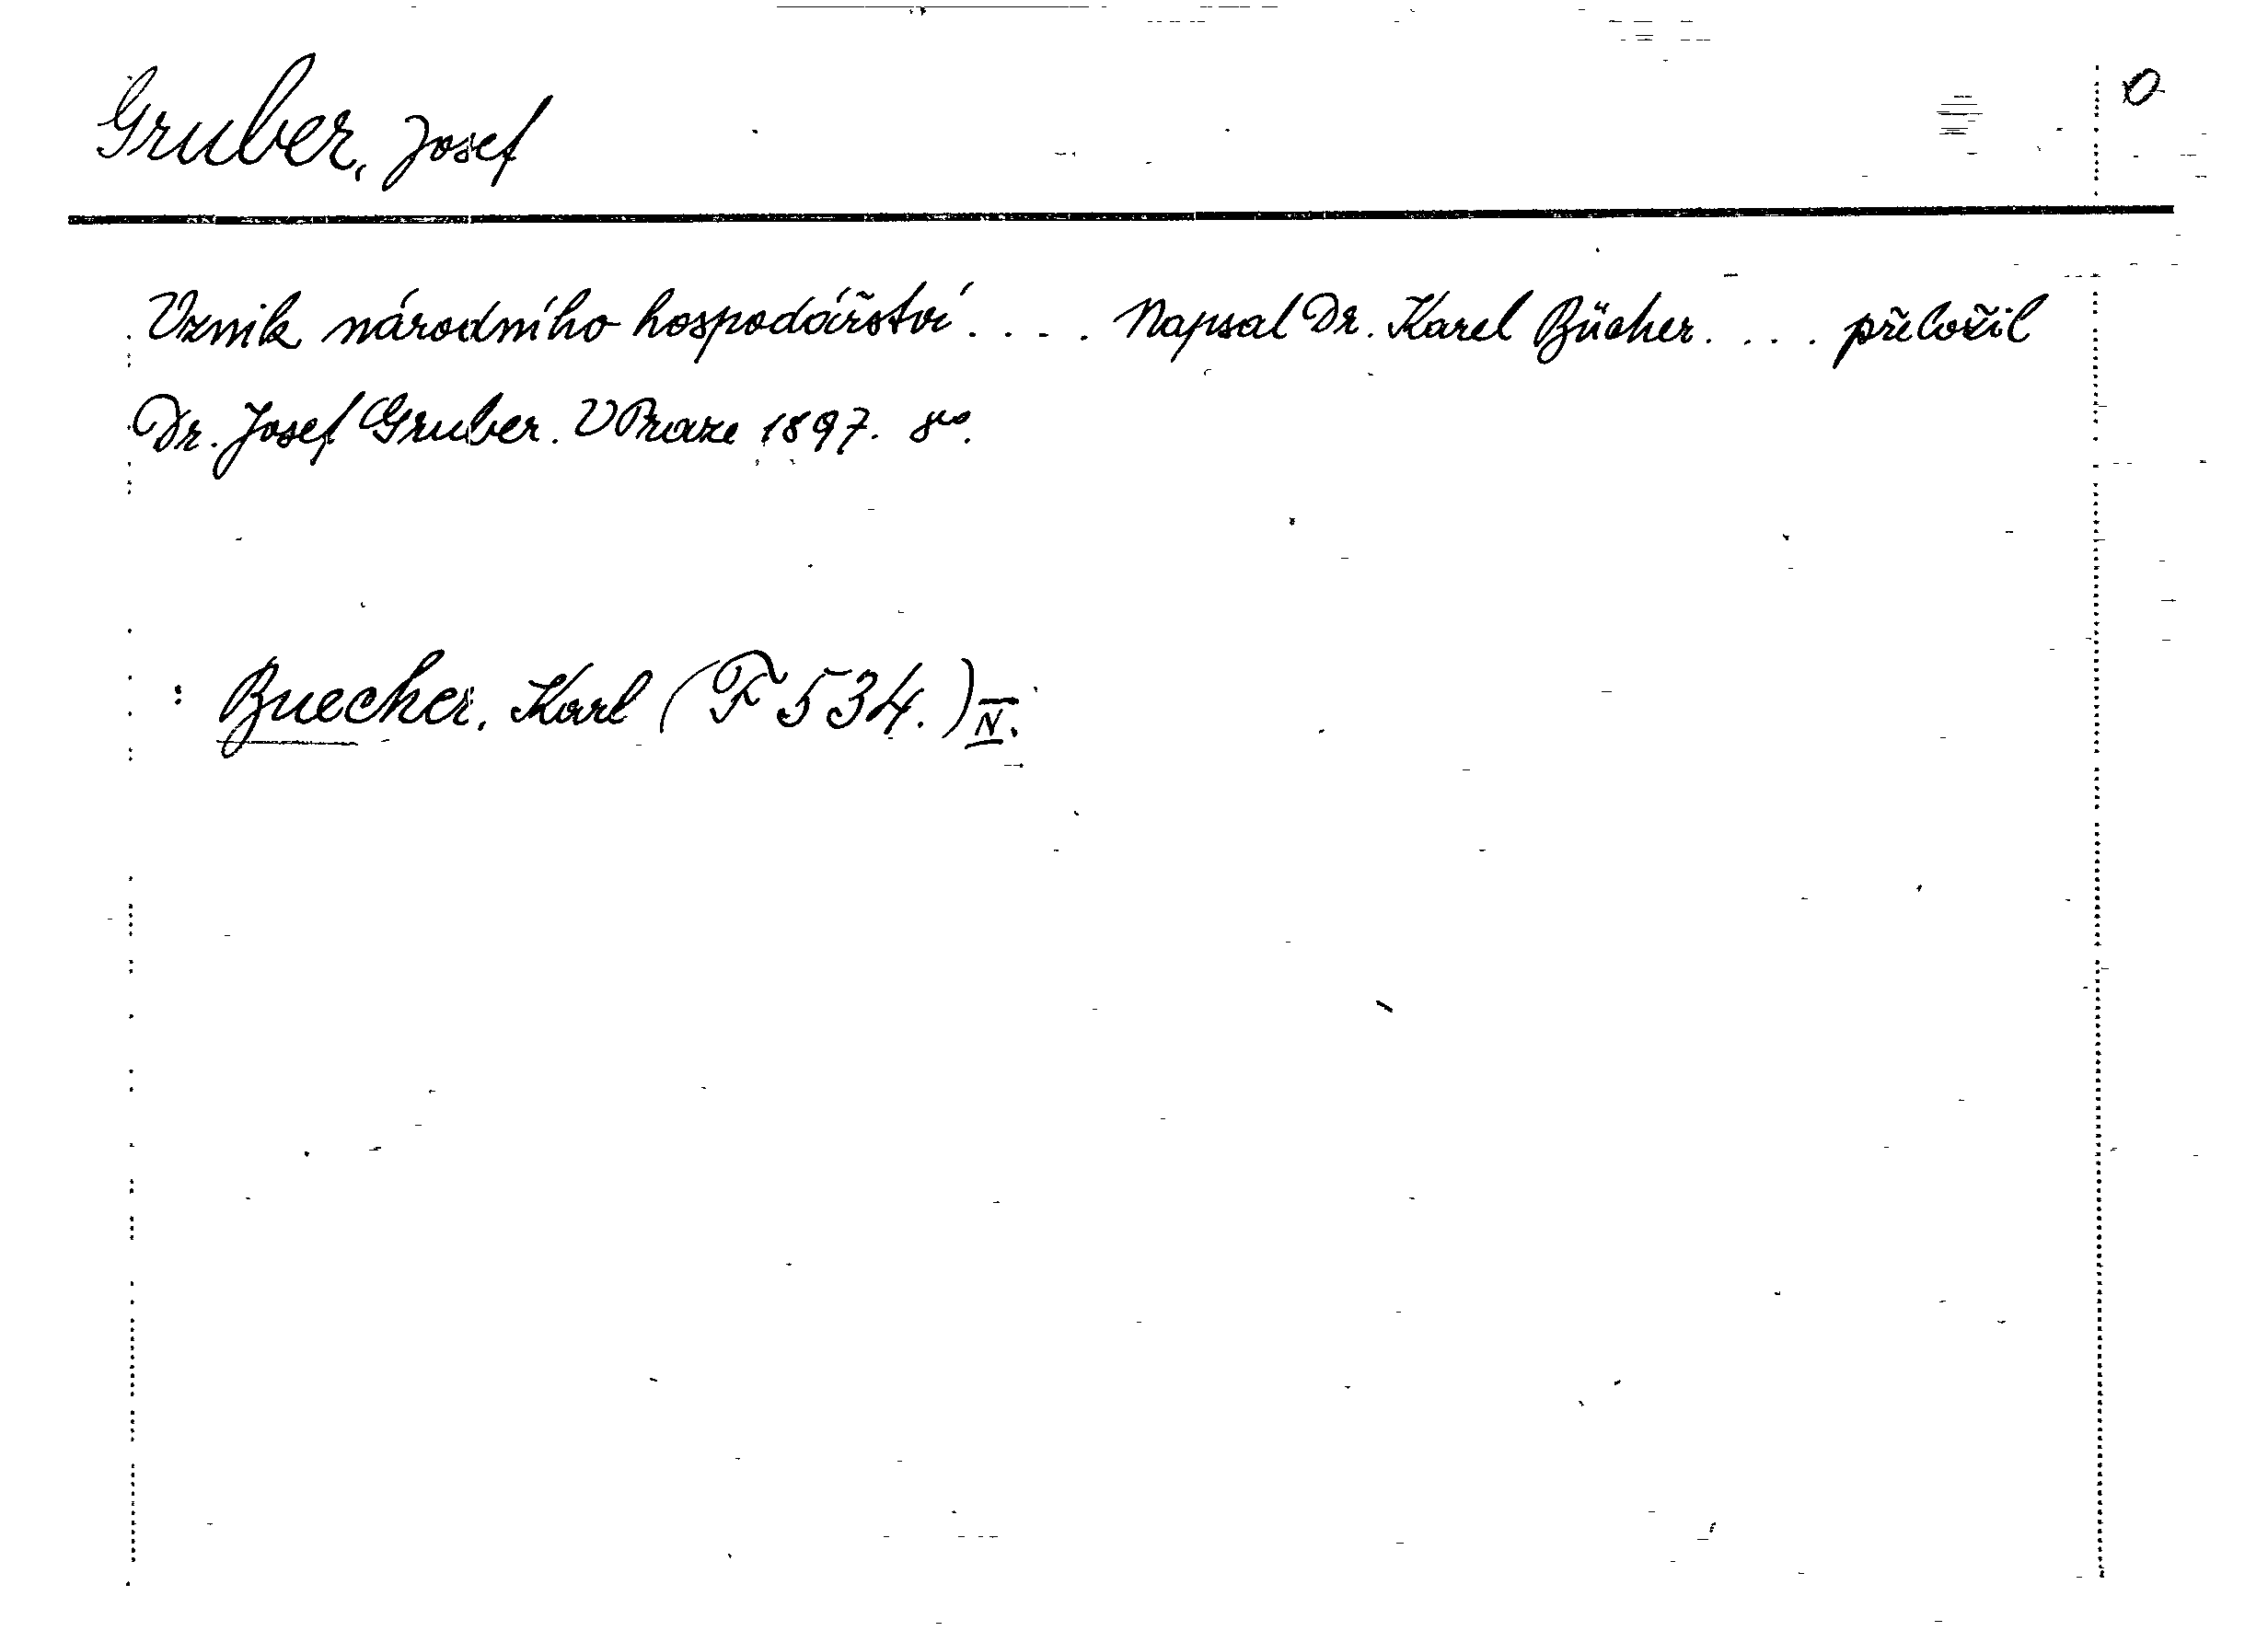 Gruber, Josef
Vznik národního hospodářství. . . . Napsal Dr. Karel Bücher. . . . přeložil
Dr. Josef Gruber. V Praze 1897. 8vo.
: Buecher, Karl (F 534.) IV.